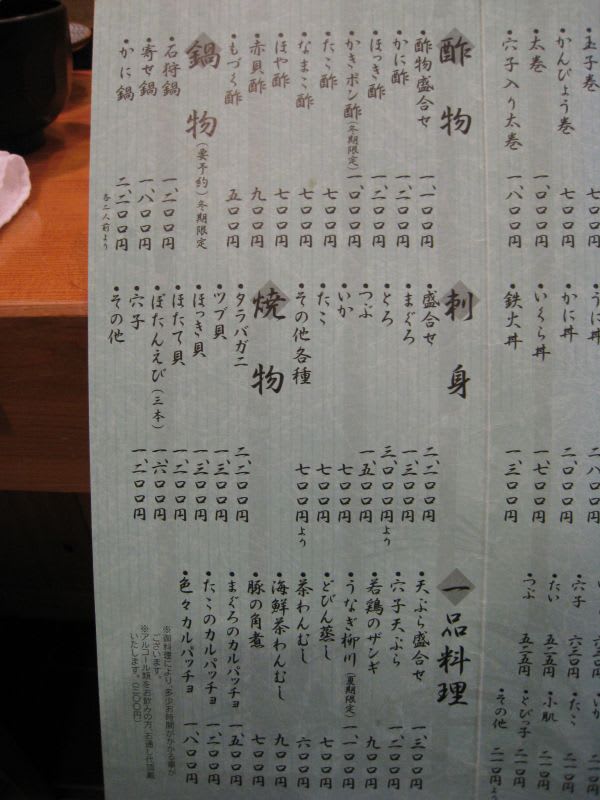 ・玉子巻
・かんぴょう巻 七〇〇円
・太巻 一、〇〇〇円
・穴子入り太巻 一、八〇〇円
酢物
・酢物盛合せ 一、一〇〇円
・かに酢 一、二〇〇円
・ほっき酢 一、二〇〇円
・かきポン酢（冬期限定） 一、〇〇〇円
・たこ酢 七〇〇円
・なまこ酢 七〇〇円
・ほや酢 七〇〇円
・赤貝酢 九〇〇円
・もづく酢 五〇〇円
鍋物（要予約）冬期限定
・石狩鍋 一、二〇〇円
・寄せ鍋 一、八〇〇円
・かに鍋 二、二〇〇円
各二人前より
・うに丼 二、八〇〇円
・かに丼 二、〇〇〇円
・いくら丼 一、七〇〇円
・鉄火丼 一、三〇〇円
刺身
・盛合せ 二、二〇〇円
・まぐろ 一、三〇〇円
・とろ 三、〇〇〇円より
・つぶ 一、五〇〇円
・いか 七〇〇円
・たこ 七〇〇円
・その他各種 七〇〇円より
焼物
・タラバガニ 二、二〇〇円
・ツブ貝 一、三〇〇円
・ほっき貝 一、三〇〇円
・ほたて貝 一、二〇〇円
・ぼたんえび（三本） 一、六〇〇円
・穴子 一、二〇〇円
・その他
・穴子 六三〇円
・たい 五二五円
・つぶ 五二五円
・たこ 二一〇円
・小肌 二一〇円
・とびっ子 二一〇円
・その他 二一〇円より
一品料理
・天ぷら盛合せ 一、三〇〇円
・穴子天ぷら 一、二〇〇円
・若鶏のザンギ 九〇〇円
・うなぎ柳川（夏期限定） 一、一〇〇円
・どびん蒸し 七〇〇円
・茶わんむし 六〇〇円
・海鮮茶わんむし 九〇〇円
・豚の角煮 七〇〇円
・まぐろのカルパッチョ 一、五〇〇円
・たこのカルパッチョ 一、二〇〇円
・色々カルパッチョ 一、八〇〇円
※御料理により、多少お時間がかかる事が
ございます。
※アルコール類をお飲みの方、お通し代頂戴
いたします。（三〇〇円）